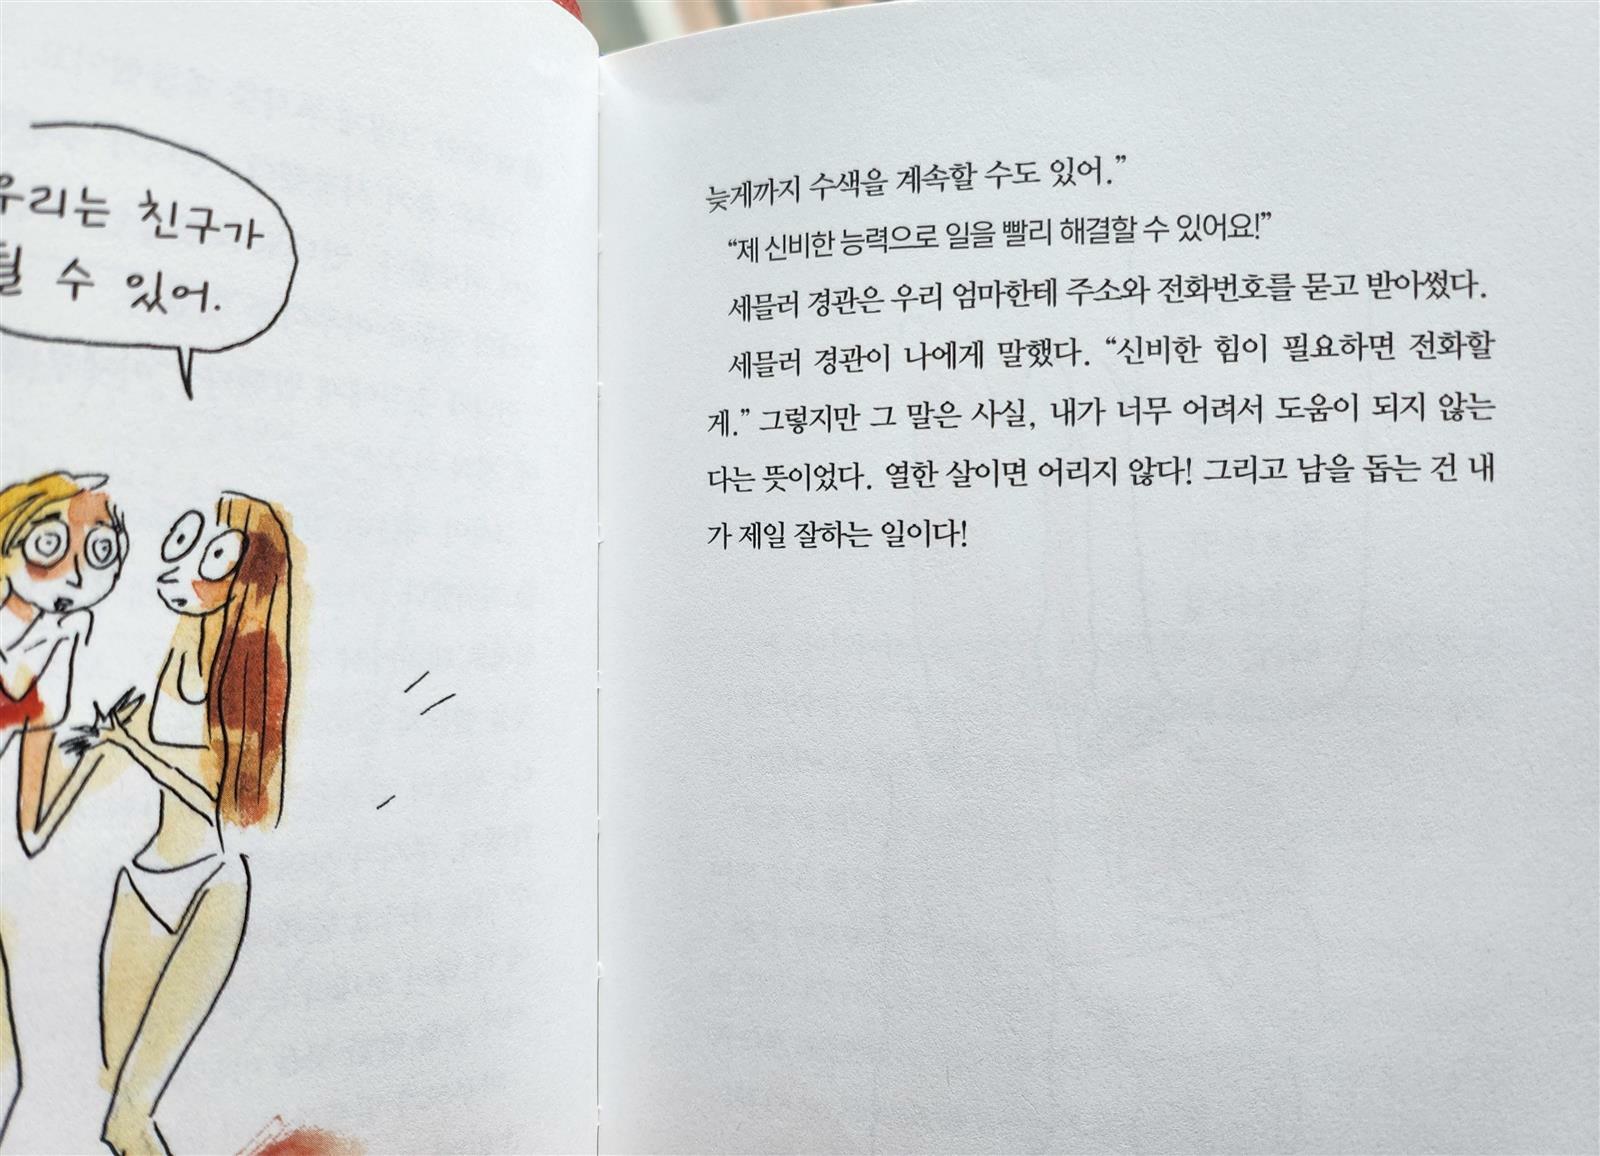 우리는 친구가
될 수 있어.
늦게까지 수색을 계속할 수도 있어.”
“제 신비한 능력으로 일을 빨리 해결할 수 있어요!”
세믈러 경관은 우리 엄마한테 주소와 전화번호를 묻고 받아썼다.
세믈러 경관이 나에게 말했다. “신비한 힘이 필요하면 전화할
게.” 그렇지만 그 말은 사실, 내가 너무 어려서 도움이 되지 않는
다는 뜻이었다. 열한 살이면 어리지 않다! 그리고 남을 돕는 건 내
가 제일 잘하는 일이다!